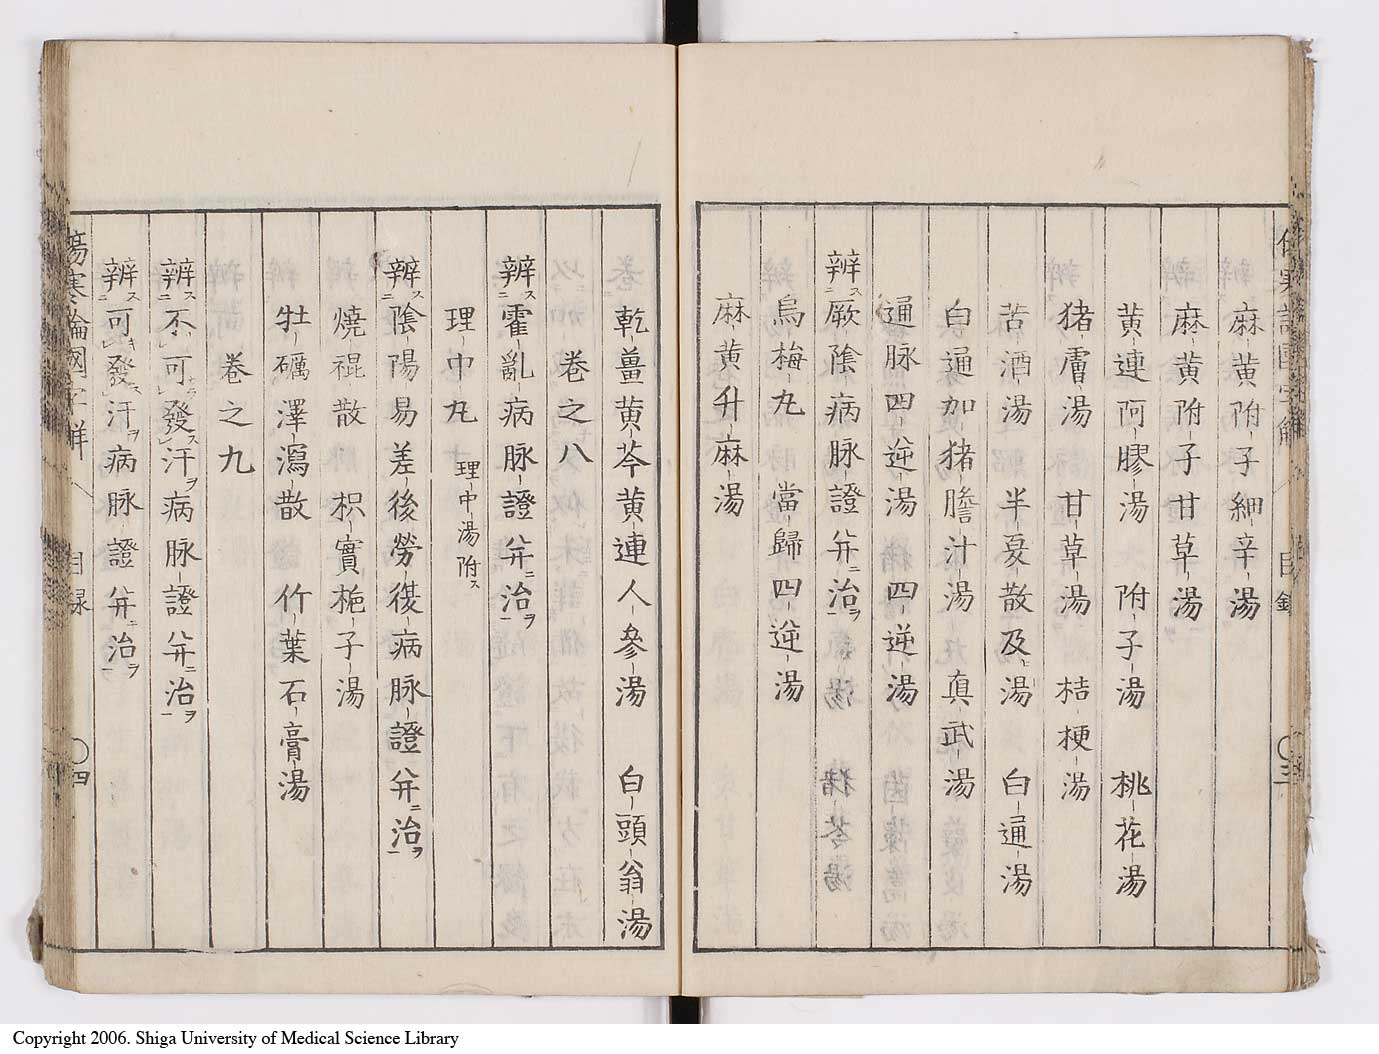 麻黄附子細辛湯
麻黄附子甘草湯
黄連阿膠湯 附子湯 桃花湯
猪膚湯 甘草湯 桔梗湯
苦酒湯 半夏散及湯 白通湯
白通加猪膽汁湯 真武湯
通脉四逆湯 四逆湯
辨ス二厥陰病脉證并ニ治ヲ一 猪苓湯
烏梅丸 當歸四逆湯
麻黄升麻湯
目録
〇三
乾薑黄芩黄連人參湯 白頭翁湯
卷之八
辨ス二霍亂病脉證并ニ治ヲ一
理中丸 理中湯附ス
辨ス二陰陽易差後勞復病脉證并ニ治ヲ一
燒裩散 枳實梔子湯
牡礪澤瀉散 竹葉石膏湯
卷之九
辨ス二不可發汗ヲ病脉證并ニ治ヲ一
辨ス二可發汗ヲ病脉證并ニ治ヲ一
傷寒論國字解 目録 〇四
Copyright 2006. Shiga University of Medical Science Library